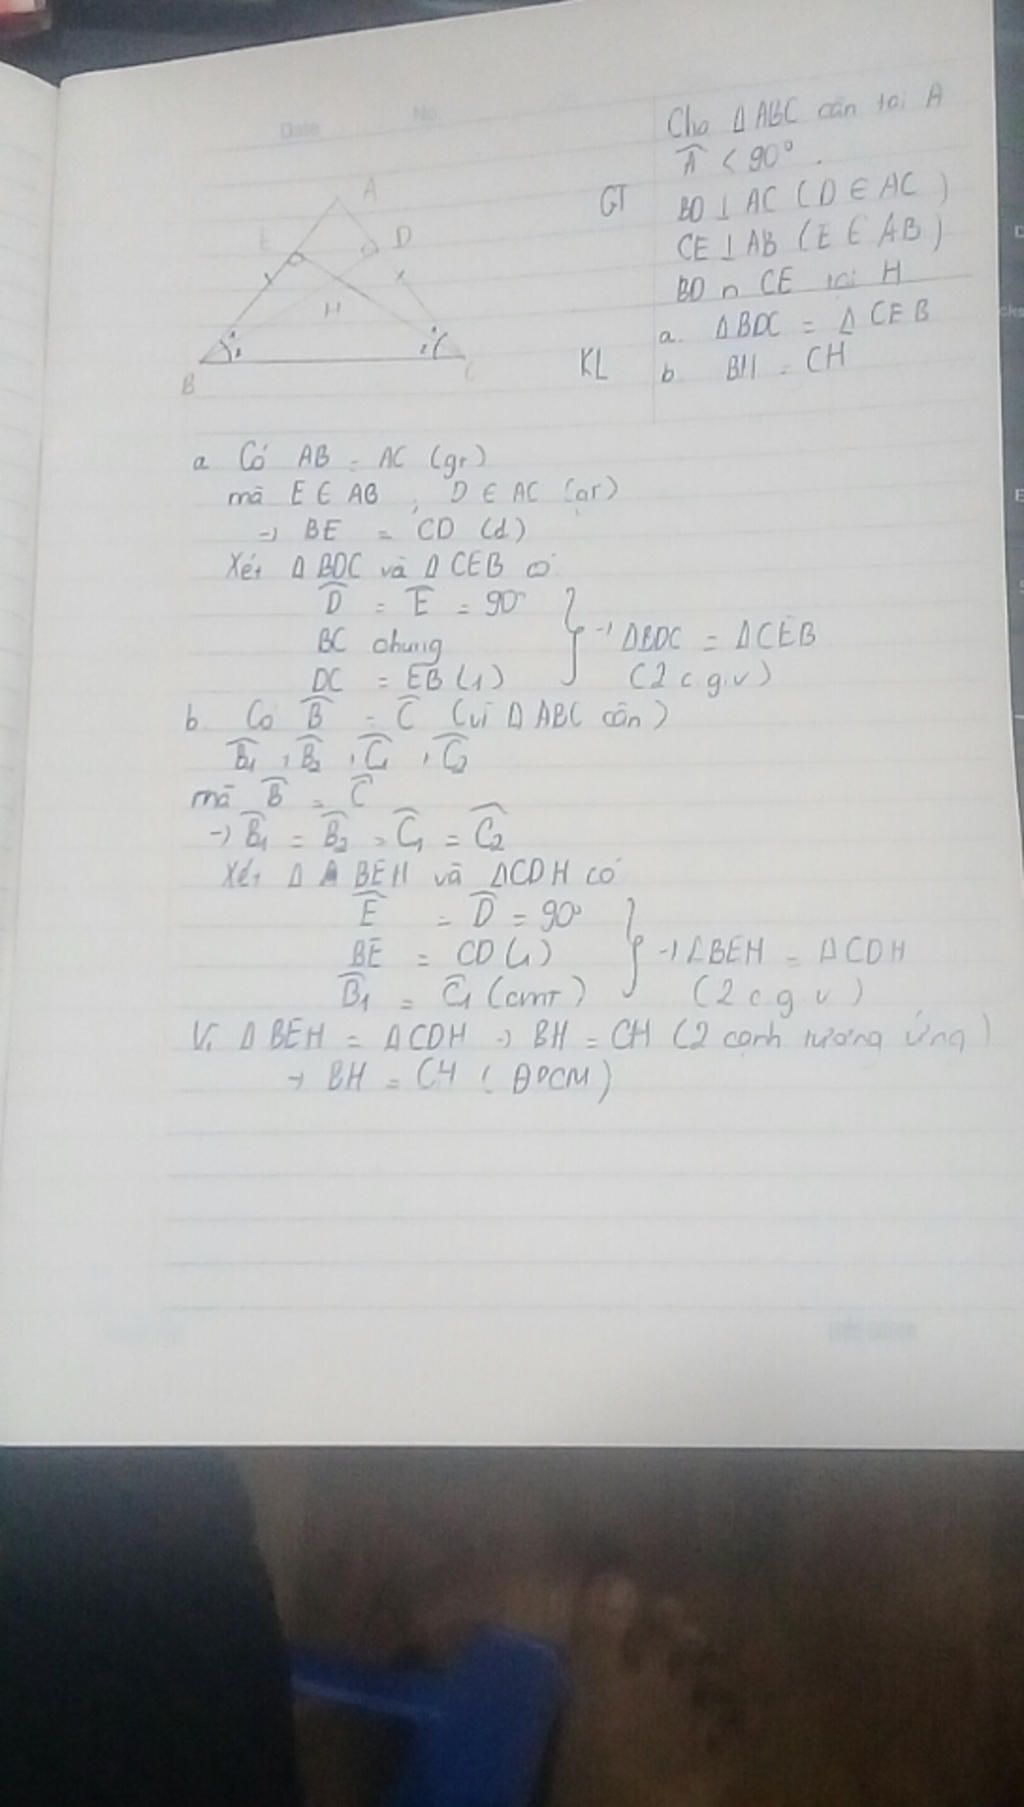 Date No.
Cho Δ ABC cân tại A
Â < 90°.
GT BD ⊥ AC (D ∈ AC)
CE ⊥ AB (E ∈ AB)
BD ∩ CE tại H
KL a. Δ BDC = Δ CEB
b BH = CH
A
E D
H
B C
a Có AB = AC (gt)
mà E ∈ AB , D ∈ AC (gt)
→ BE = CD (1)
Xét Δ BDC và Δ CEB có
D̂ = Ê = 90°
BC chung → ΔBDC = ΔCEB
DC = EB (1) (2 c g.v)
b. Có B̂ = Ĉ (vì Δ ABC cân)
B̂₁ , B̂₂ , Ĉ₁ , Ĉ₂
mà B̂ = Ĉ
→ B̂₁ = B̂₂ = Ĉ₁ = Ĉ₂
Xét Δ BEH và ΔCDH có
Ê = D̂ = 90°
BE = CD (1) → ΔBEH = ΔCDH
B̂₁ = Ĉ₁ (cmt) (2 c g v)
Vì Δ BEH = ΔCDH → BH = CH (2 cạnh tương ứng)
→ BH = CH (ĐPCM)